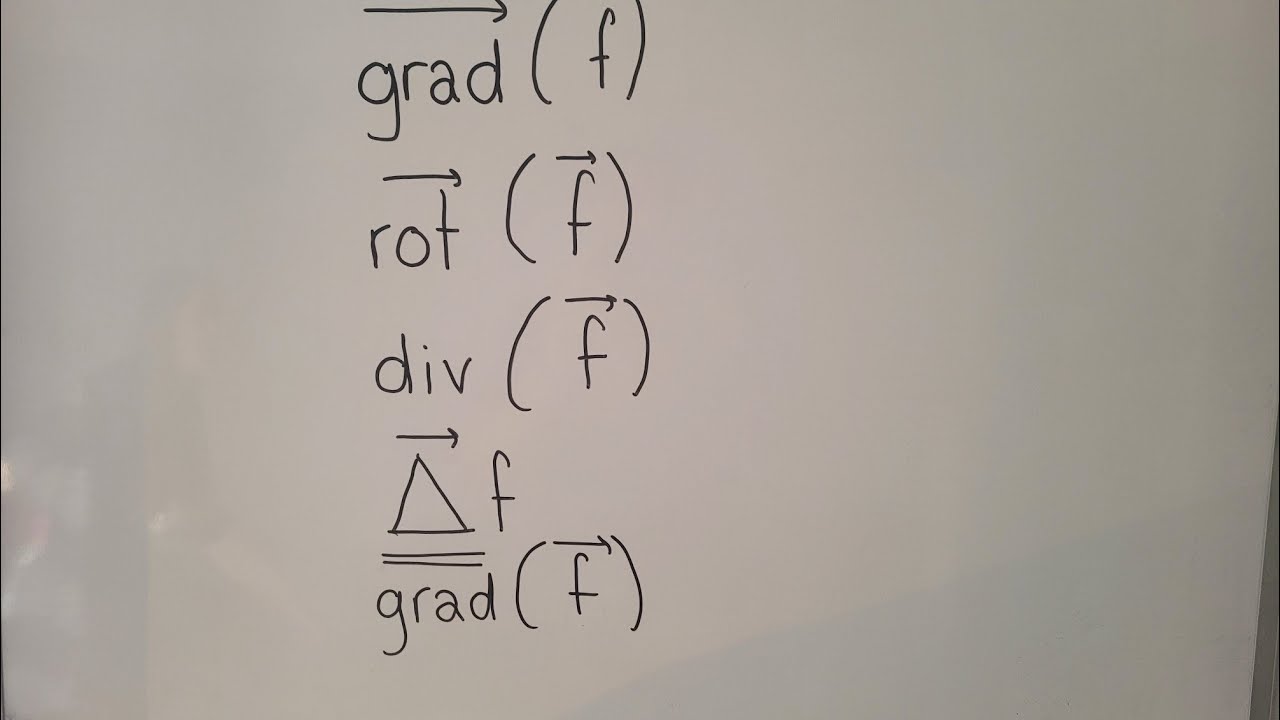 grad⃗ (f)
rot⃗ (f⃗)
div (f⃗)
Δ⃗ f
g̿r̿a̿d̿ (f⃗)